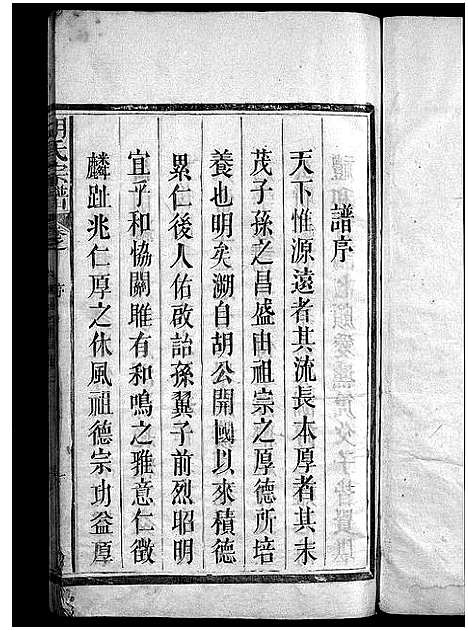 譜序
天下惟源遠者其流長本厚者其末
茂子孫之昌盛由祖宗之厚德所培
養也明矣溯自胡公開國以來積德
累仁後人佑啟詒孫翼子前烈昭明
宜乎和恊關雎有和鳴之雅意仁徵
麟趾兆仁厚之休風祖德宗功益厚
胡氏宗譜